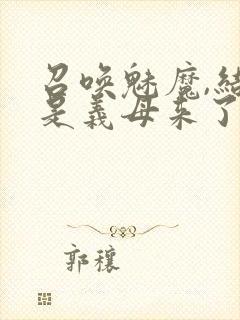 召唤魅魔,结
是义母来了
郭穰